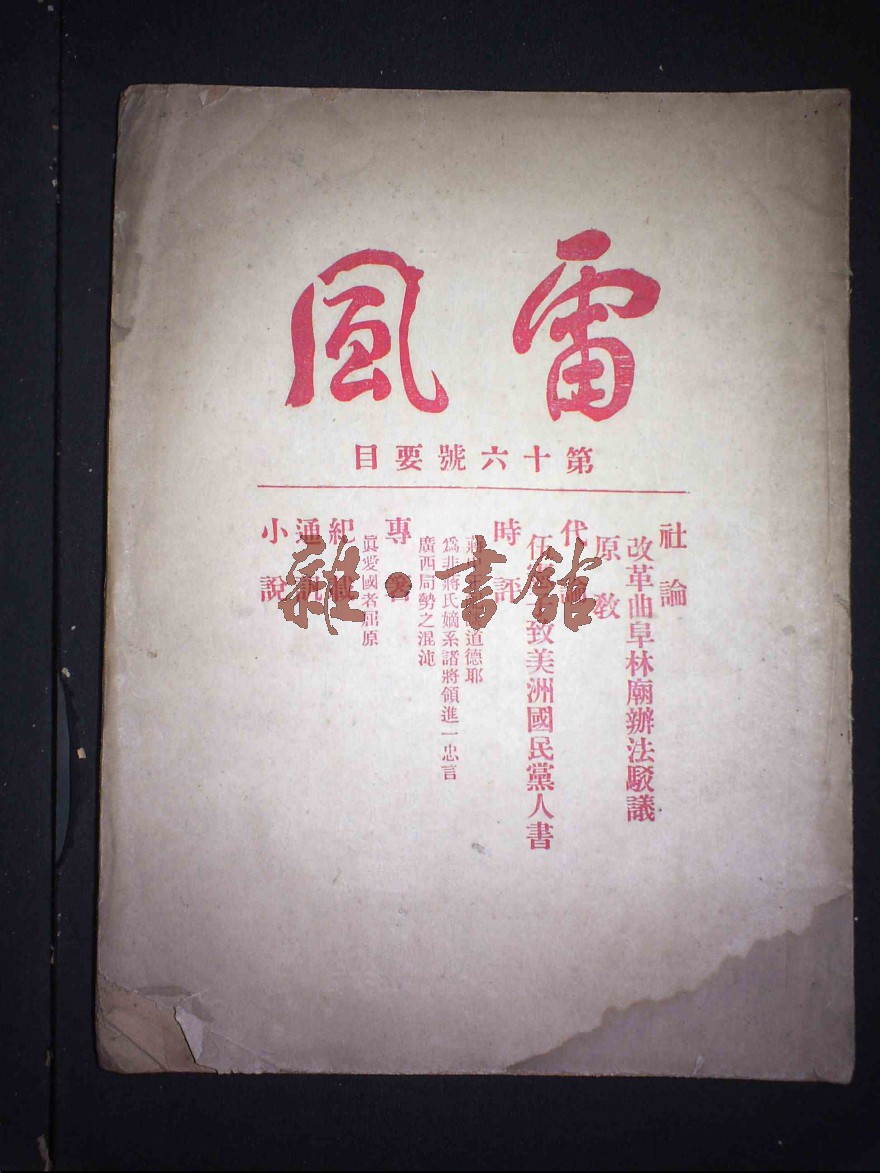 雷風
第十六號要目
社論
改革曲阜林廟辦法駁議
原教
代論
致美洲國民黨人書
時評
道德耶
為非蔣氏嫡系諸將領進一忠言
廣西局勢之混沌
專著
眞愛國者屈原
紀載
通訊
小說
雜·書館